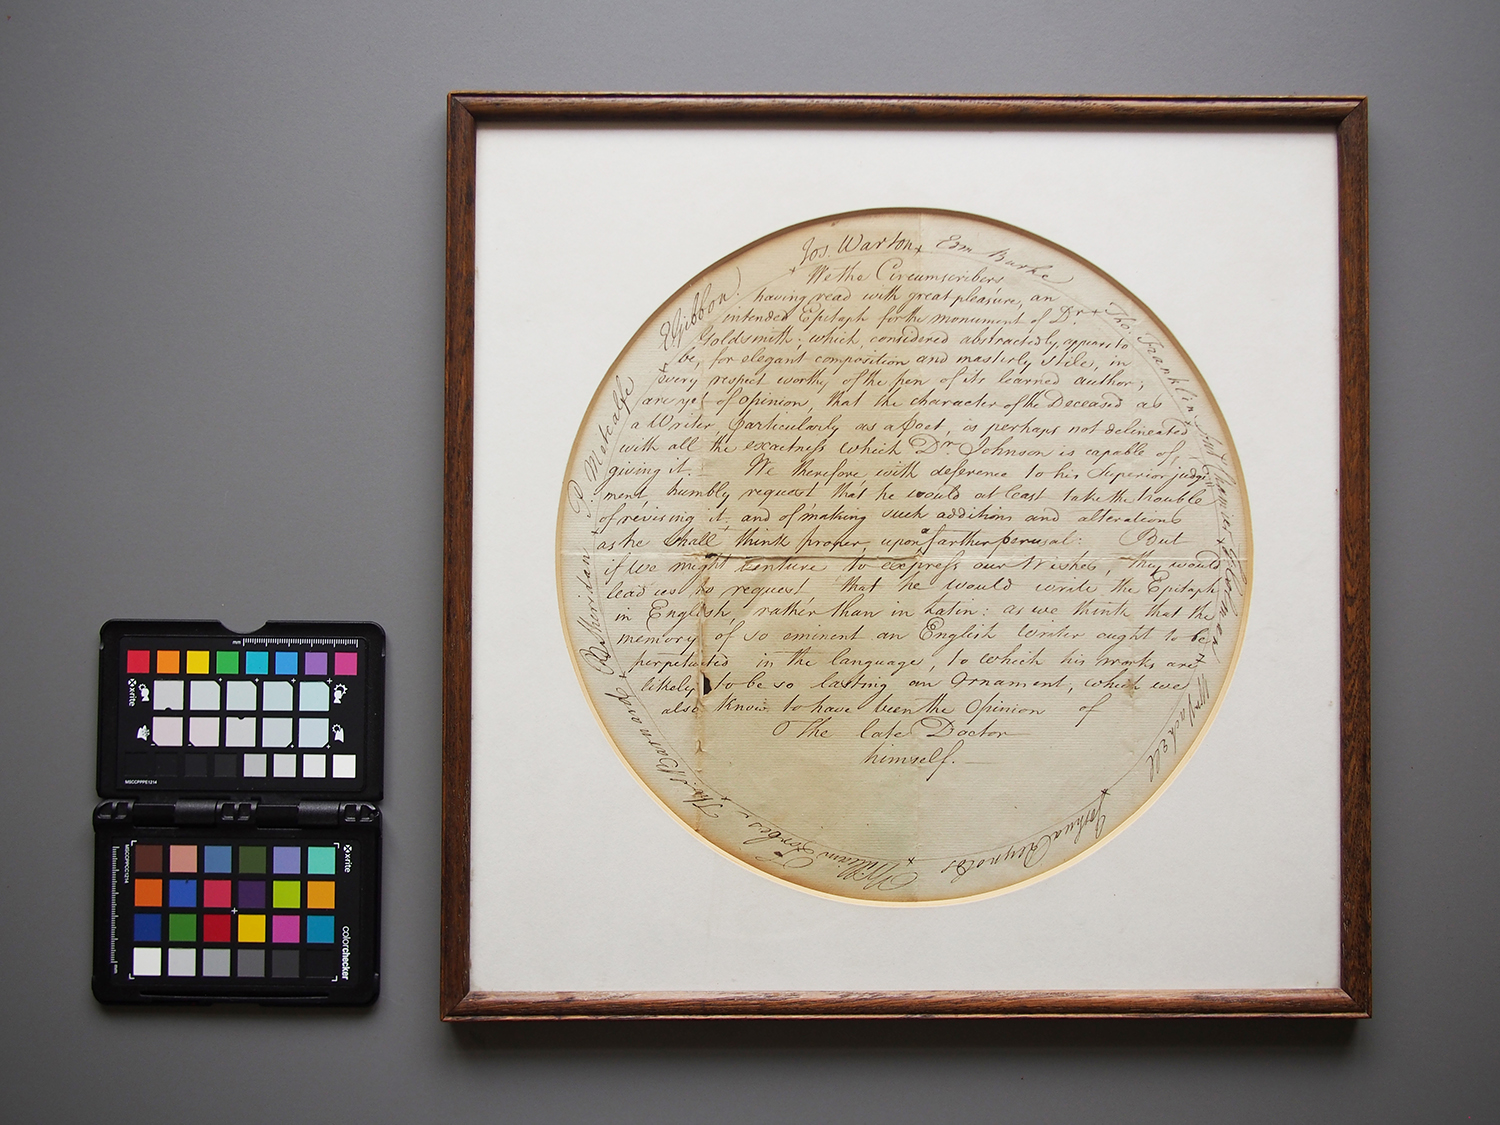 Jos. Warton
Edm Burke
Tho. Franklin
Ant. Chamier
G Colman
Wm Vachell
Joshua Reynolds
William Forbes
Tho. Barnard
R B Sheridan
P. Metcalfe
E Gibbon
We the Circumscribers
having read with great pleasure, an
intended Epitaph for the monument of Dr.
Goldsmith; which, considered abstractedly, appears to
be, for elegant composition and masterly Stile, in
every respect worthy of the pen of its learned author;
are yet of opinion, that the character of the Deceased as
a Writer, particularly as a Poet, is perhaps not delineated
with all the exactness which Dr. Johnson is capable of
giving it. — We therefore with deference to his Superior judg-
ment, humbly request that he would at least take the trouble
of revising it, and of making such additions and alterations
as he shall think proper, upon a farther perusal: But
if we might venture to express our Wishes, they would
lead us to request, that he would write the Epitaph
in English, rather than in Latin: as we think that the
memory of so eminent an English Writer ought to be
perpetuated in the language, to which his works are
likely to be so lasting an Ornament, which we
also know to have been the Opinion of
The late Doctor
himself. —
mm
xrite
MSCCPPPE1214
MSCCPPCC1214
xrite
colorchecker
mm